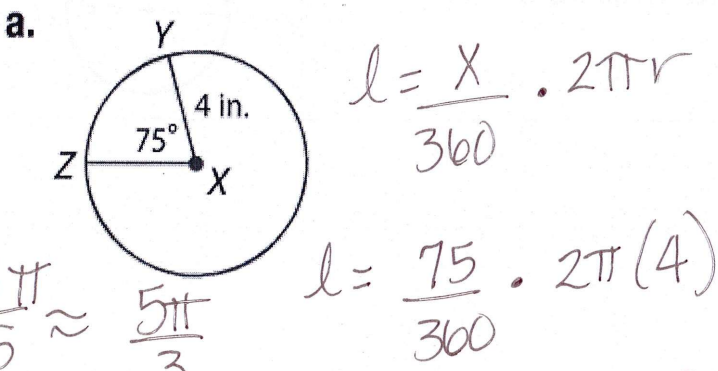 a.
Y
4 in.
75°
Z
X
l = X/360 · 2πr
l = 75/360 · 2π(4)
π ≈ 5π/3